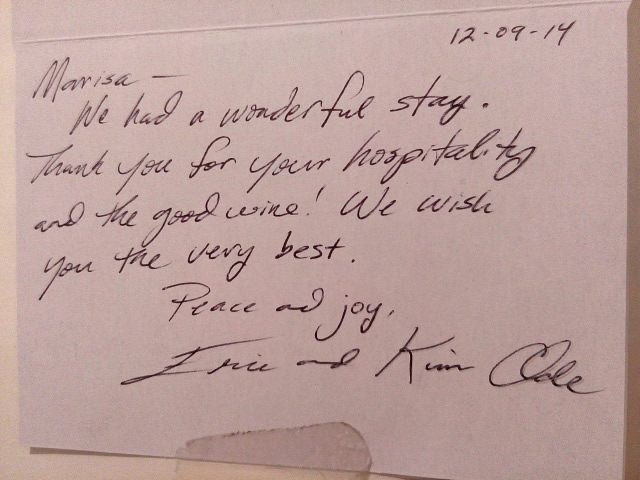 12-09-14
Marisa —
We had a wonderful stay.
Thank you for your hospitality
and the good wine! We wish
you the very best.
Peace and joy,
Eric and Kim